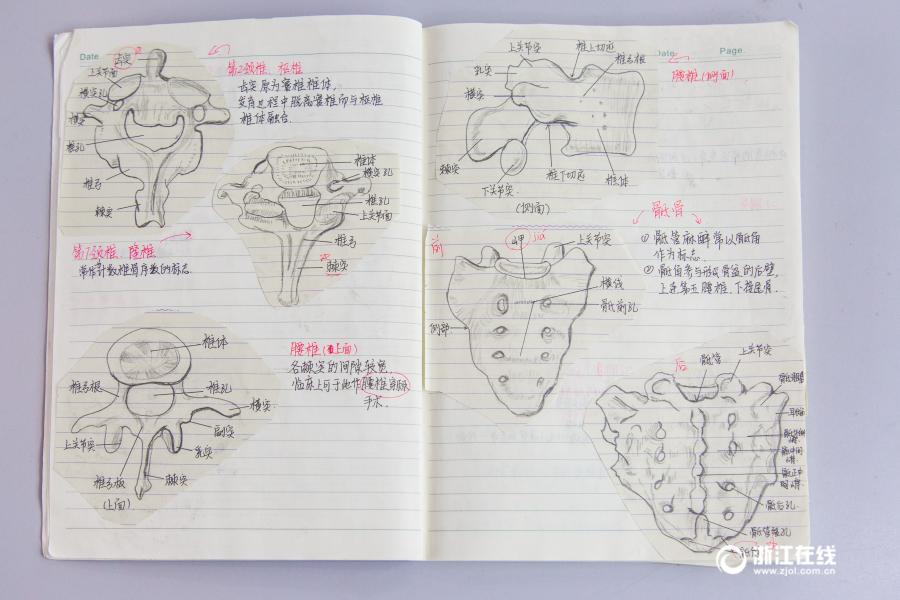 Date
齿突
上关节面
横突孔
横突
椎孔
椎弓
棘突
第2颈椎、枢椎
齿突原为寰椎椎体,
发育过程中脱离寰椎而与枢椎
椎体融合.
椎体
横突孔
椎孔
上关节面
椎弓
棘突
第7颈椎、隆椎
常作计数椎骨序数的标志.
椎体
椎弓根
椎孔
横突
上关节突
副突
乳突
椎弓板
棘突
(上面)
腰椎(上面)
各棘突的间隙较宽
临床上可于此作腰椎穿刺
手术.
Date.
Page.
上关节突
椎上切迹
椎弓根
乳突
横突
棘突
下关节突
椎下切迹
椎体
(侧面)
腰椎(侧面)
骶骨
① 骶管麻醉常以骶角
作为标志.
② 骶角参与形成骨盆的后壁,
上连第五腰椎, 下接尾骨.
前
岬
jiǎ
上关节突
横线
骶前孔
侧部
后
骶管
上关节突
骶粗隆
耳状面
骶中间
骶正中
骶后孔
骶管裂孔
浙江在线
www.zjol.com.cn